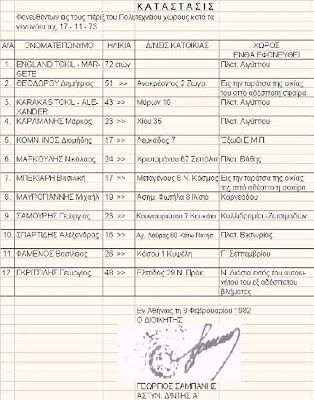 ΚΑΤΑΣΤΑΣΙΣ
Φονευθέντων εις τους πέριξ του Πολυτεχνείου χώρους κατά τα
γεγονότα της 17 - 11 - 73
Α/Α ΟΝΟΜΑΤΕΠΩΝΥΜΟ ΗΛΙΚΙΑ Δ/ΝΣΕΙΣ ΚΑΤΟΙΚΙΑΣ ΧΩΡΟΣ
ΕΝΘΑ ΕΦΟΝΕΥΘΕΙ
1. ENGLAND TOKIL - MAR- 72 ετών Πλατ. Αιγύπτου
GETE
2. ΘΕΟΔΩΡΟΥ Δημήτριος 51 >> Ανακρέοντος 2 Ζωγρ. Εις την ταράτσα της οικίας
του από αδέσποτη σφαίρα
3. KARAKAS TOKIL - ALE- 43 >> Μύρων 10 Πλατ. Αιγύπτου
XANDER
4. ΚΑΡΑΜΑΝΗΣ Μάρκος 23 >> Χίου 35 Πλατ. Αιγύπτου
5. ΚΟΜΝΗΝΟΣ Διομήδης 17 >> Λευκάδος 7 Έξωθι Ε.Μ.Π.
6. ΜΑΡΚΟΥΛΗΣ Νικόλαος 24 >> Χρηστομάνου 67 Σεπόλια Πλατ. Βάθης
7. ΜΠΕΚΙΑΡΗ Βασιλική 17 >> Μεταγένους 8 Ν. Κόσμος Εις την ταράτσα της οικίας
της από αδέσποτη σφαίρα
8. ΜΑΥΡΟΓΙΑΝΝΗΣ Μιχαήλ 19 >> Ασημ. Φωτήλα 8 Ιλίσια Καρνεάδου
9. ΣΑΜΟΥΡΗΣ Γεώργιος 23 >> Κουντουριώτου 7 Κουκάκι Καλλιδρομίου-Ζωσιμάδων
10. ΣΠΑΡΤΙΔΗΣ Αλέξανδρος 16 >> Αγ. Λαύρας 80 Κάτω Πατήσ. Πλατ. Βικτωρίας
11. ΦΑΜΕΛΟΣ Βασίλειος 26 >> Κάσου 1 Κυψέλη Γ' Σεπτεμβρίου
12. ΓΚΡΙΤΣΙΛΗΣ Γεώργιος 48 >> Ελπίδος 29 Ν.
εντός του αυτοκι-
νήτου του εξ αδέσποτου
βλήματος
Εν Αθήναις τη 8 Φεβρουαρίου 1982
Ο ΔΙΟΙΚΗΤΗΣ
ΓΕΩΡΓΙΟΣ ΣΑΜΠΑΝΗΣ
ΑΣΤΥΝ. Δ/ΝΤΗΣ Α'